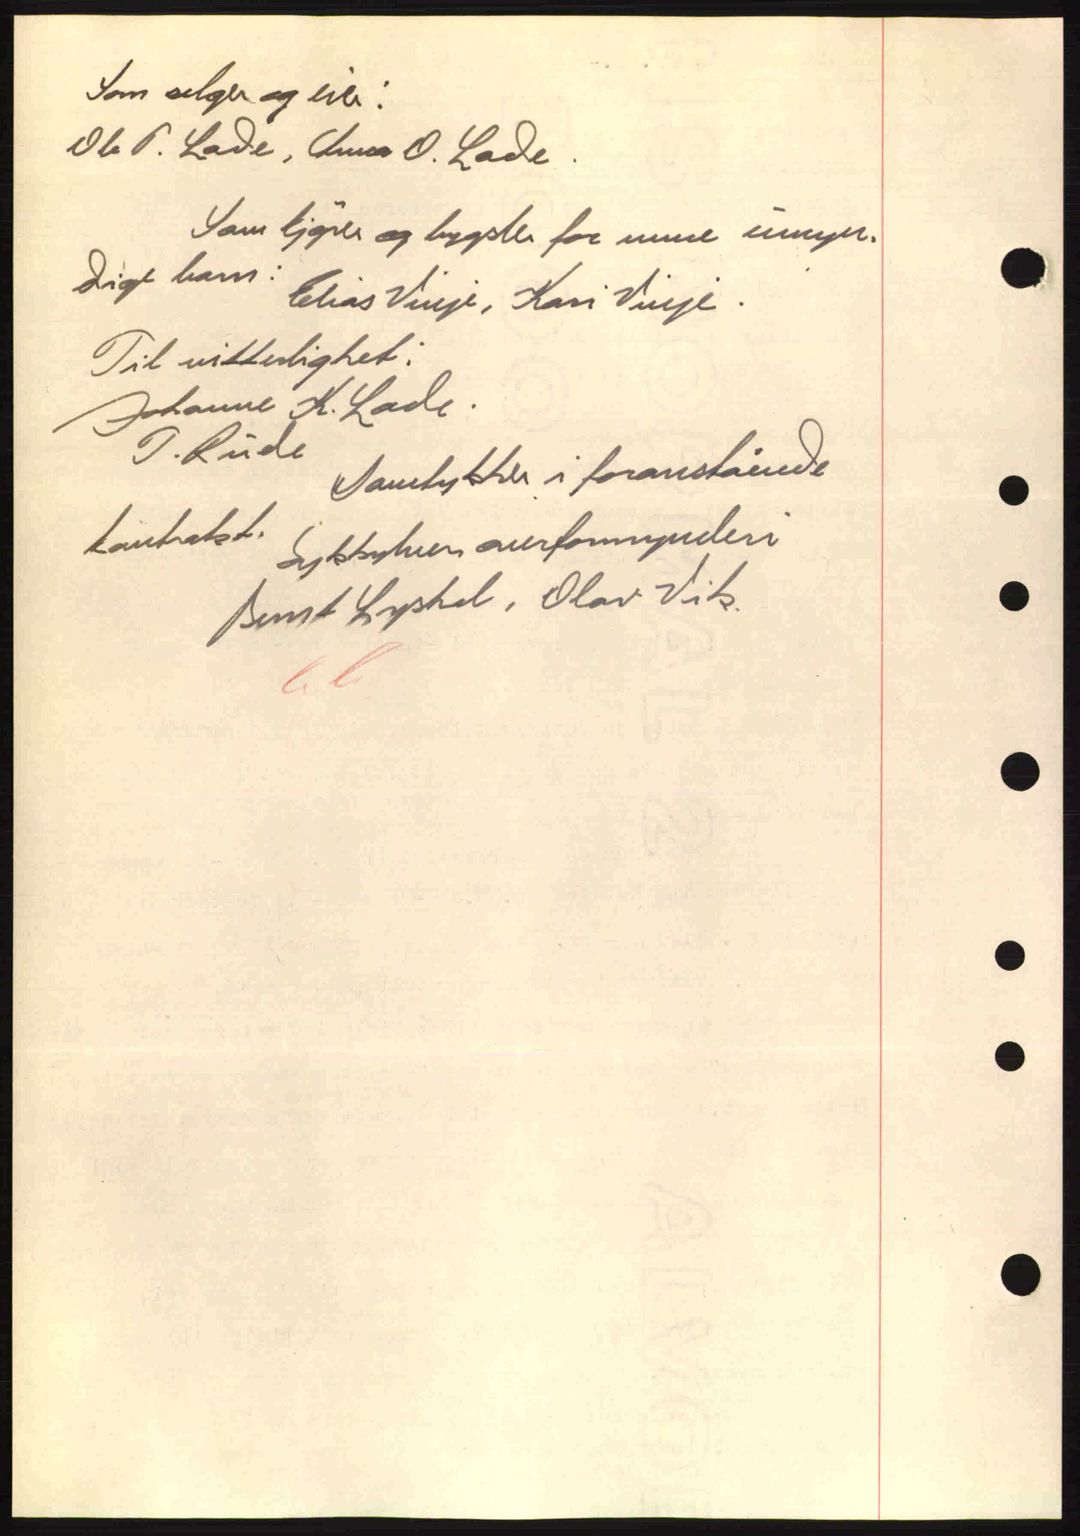 Som selger og eier:
Ole T. Lade, Anna O. Lade.
Som kjøper og bygsler for mine umyn-
dige barn: Elias Vinje, Kari Vinje.
Til vitterlighet:
Johanne K. Lade.
T. Rude
Samtykker i foranstående
kontrakt.
Sykkylven overformynderi
Bernt Lyshol, Olav Vik.